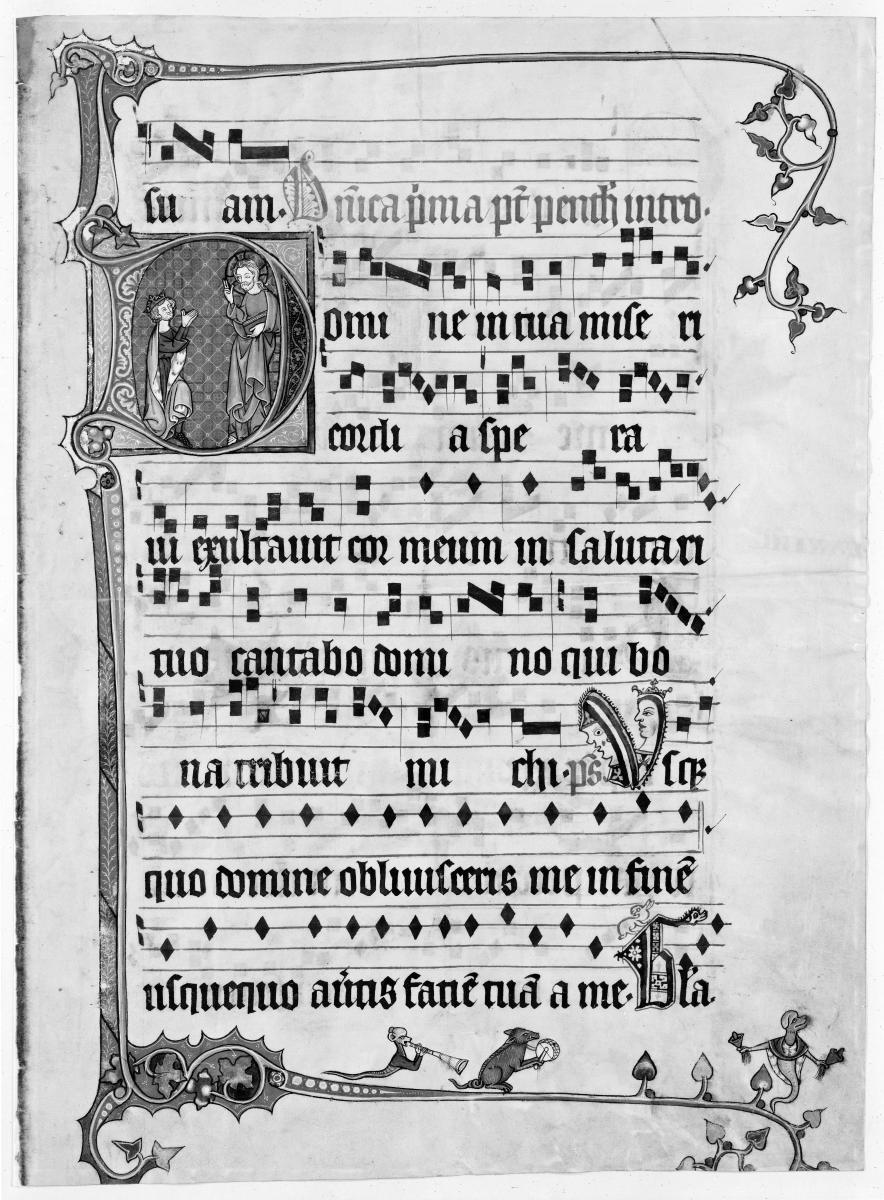 su am. Dn̄ica p̄ma pt̄ penth̄ intro.
Domi ne in tua mise ri
cordi a spe ra
ui exultauit cor meum in salutari
tuo cantabo domi no qui bo
na tribuit mi chi. ps̄. Vsq;
quo domine obliuisceris me in finē
usquequo au̾tis faciē tuā a me. Gl̾a.